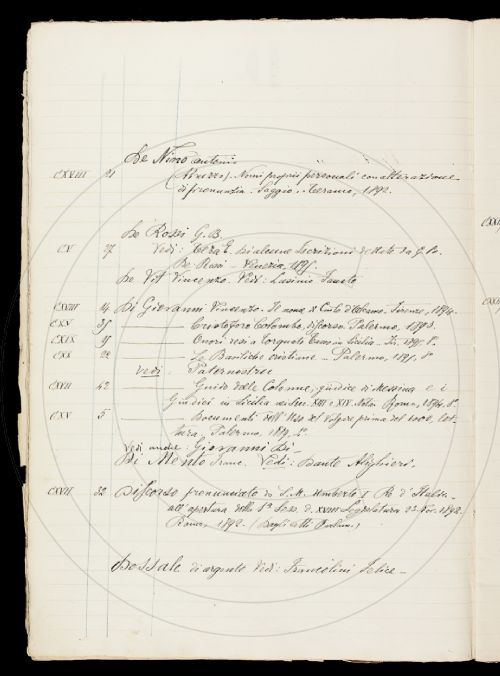 De Nino Antonio
CXVIII 21 (Abruzzo). Nomi proprii personali con alterazione
di pronunzia. Saggio. Teramo, 1892.
De Rossi G. B.
CV 27 Vedi: Teza E. Di alcune Iscrizioni edite da G. B.
De Rossi - Venezia, 1895.
De Vit Vincenzo. Vedi: Lasinio Fausto
CXVIII 14 Di Giovanni Vincenzo. Firenze, 1894.
CXV 35 Cristoforo Colombo, discorso. Palermo, 1893.
CXIX 15 Onori resi a Torquato Tasso in Sicilia. 1895. 8°
CXX 22 Le Basiliche cristiane - Palermo, 1895. 8°
vedi Paternostreu
CXVII 42 Guido delle Colonne, giudice di Messina e i
Giudici in Sicilia nei Sec. XIII e XIV. Nota. Roma, 1894. 8°
CXV 5 Documenti dell'Uso del Volgare prima del 1000, Let-
tura, Palermo,
Vedi anche: Giovanni Di-
Di Mento Franc. Vedi: Dante Alighieri.
CXVII 32 Discorso pronunciato da S. M. Umberto I Re d'Italia
all'apertura della 1ª Sess. d. XVIII Legislatura 23 Nov. 1892.
Roma, 1892. (Dagli Atti Parlam.)
Dossale di argento Vedi: Franceschini Felice -